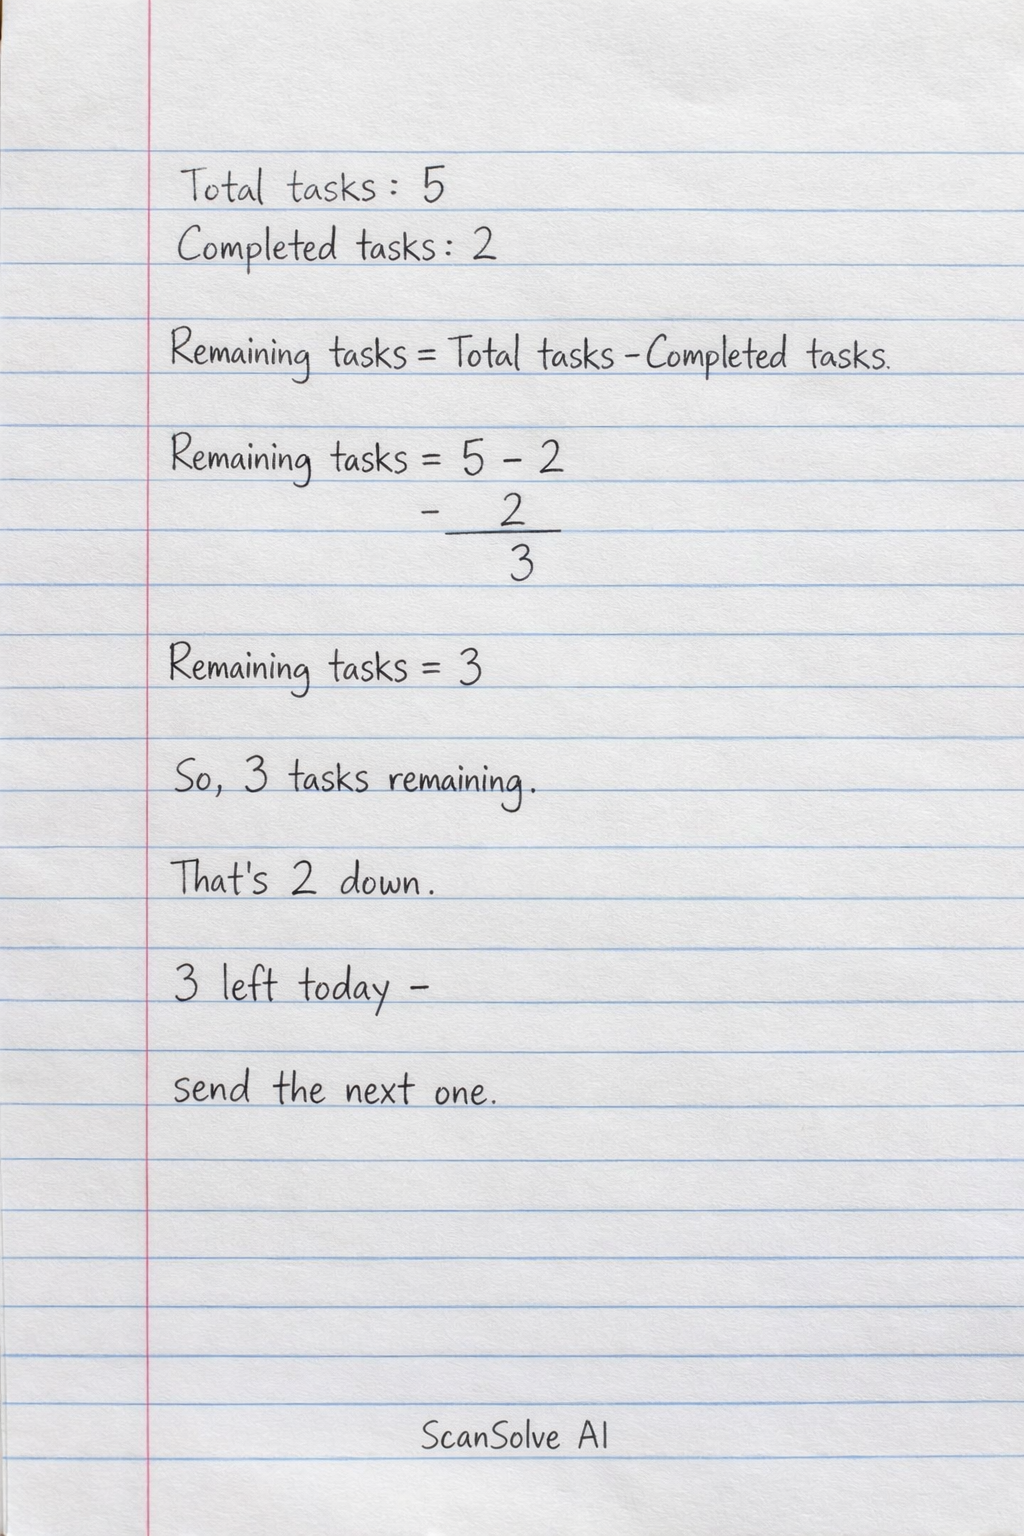 Total tasks: 5
Completed tasks: 2
Remaining tasks = Total tasks - Completed tasks.
Remaining tasks = 5 - 2
- 2
3
Remaining tasks = 3
So, 3 tasks remaining.
That's 2 down.
3 left today -
send the next one.
ScanSolve AI